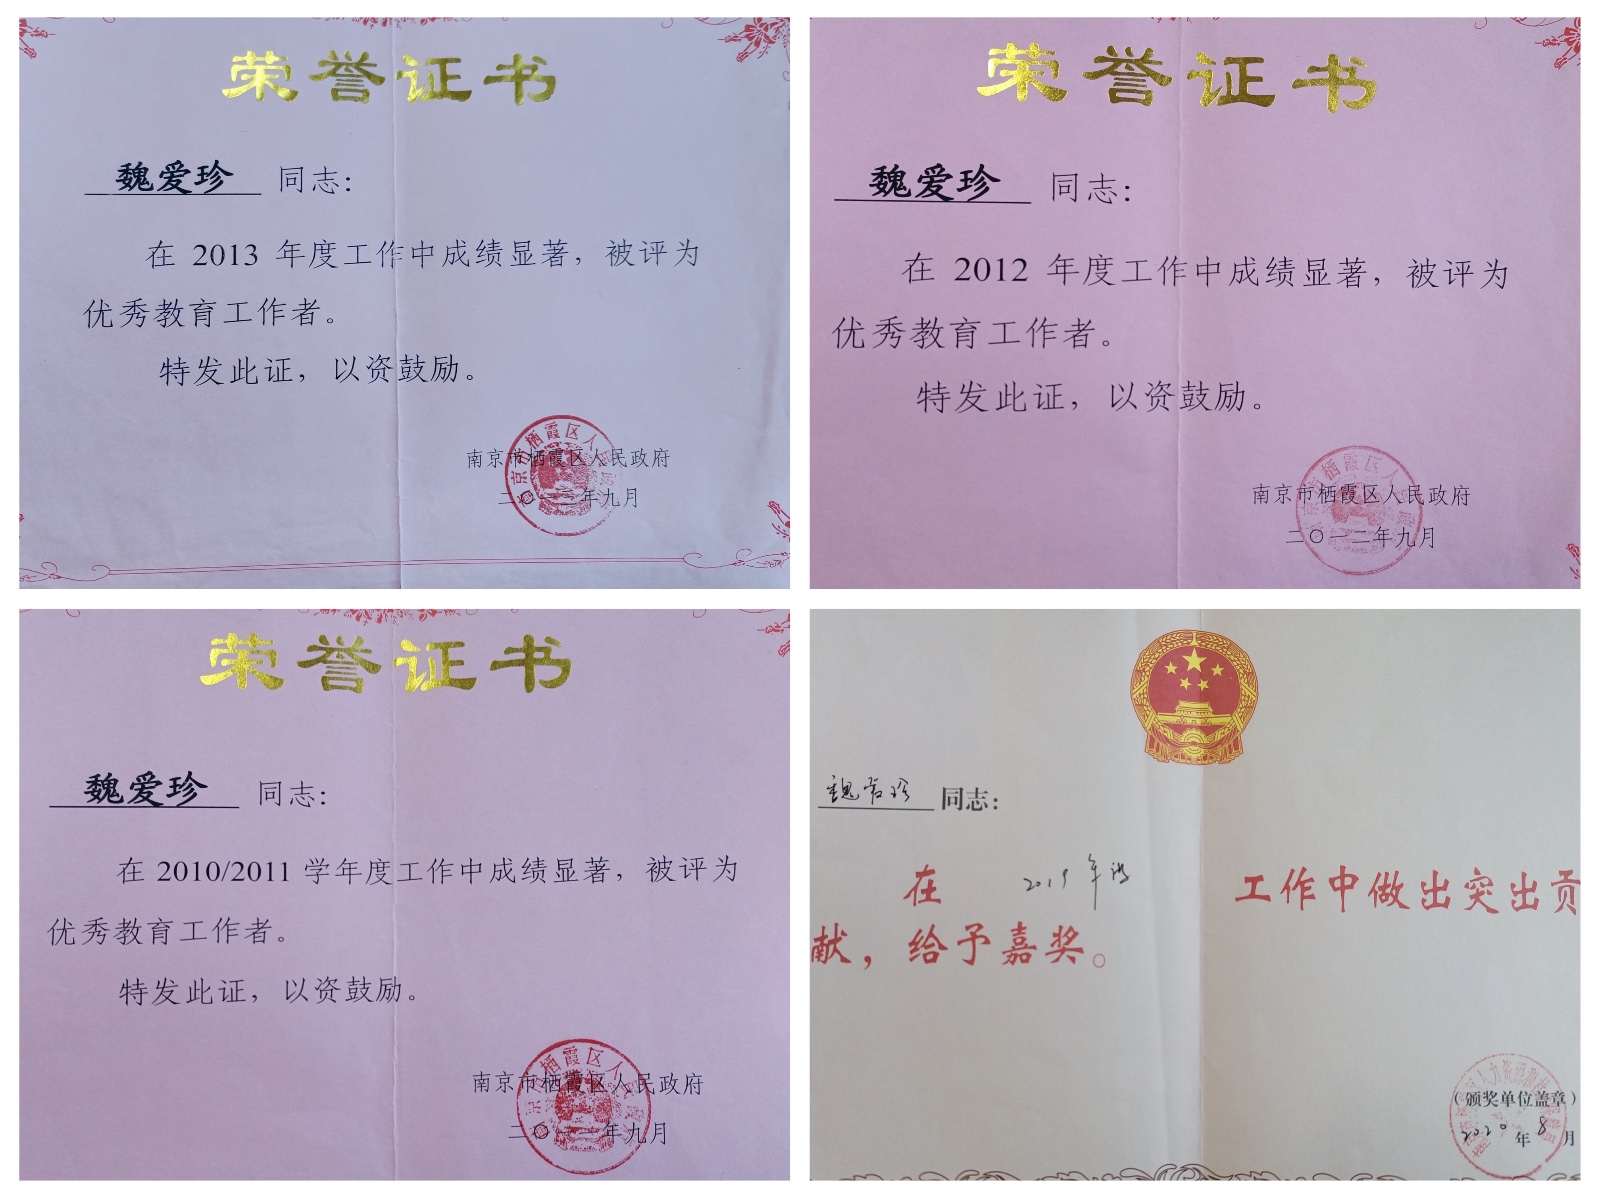 荣誉证书
魏爱珍 同志：
在 2013 年度工作中成绩显著，被评为
优秀教育工作者。
特发此证，以资鼓励。
南京市栖霞区人民政府
二〇一三年九月
荣誉证书
魏爱珍 同志：
在 2012 年度工作中成绩显著，被评为
优秀教育工作者。
特发此证，以资鼓励。
南京市栖霞区人民政府
二〇一二年九月
荣誉证书
魏爱珍 同志：
在 2010/2011 学年度工作中成绩显著，被评为
优秀教育工作者。
特发此证，以资鼓励。
南京市栖霞区人民政府
二〇一一年九月
魏爱珍 同志：
在 2019 年度 工作中做出突出贡
献，给予嘉奖。
（颁奖单位盖章）
2020 年 8 月